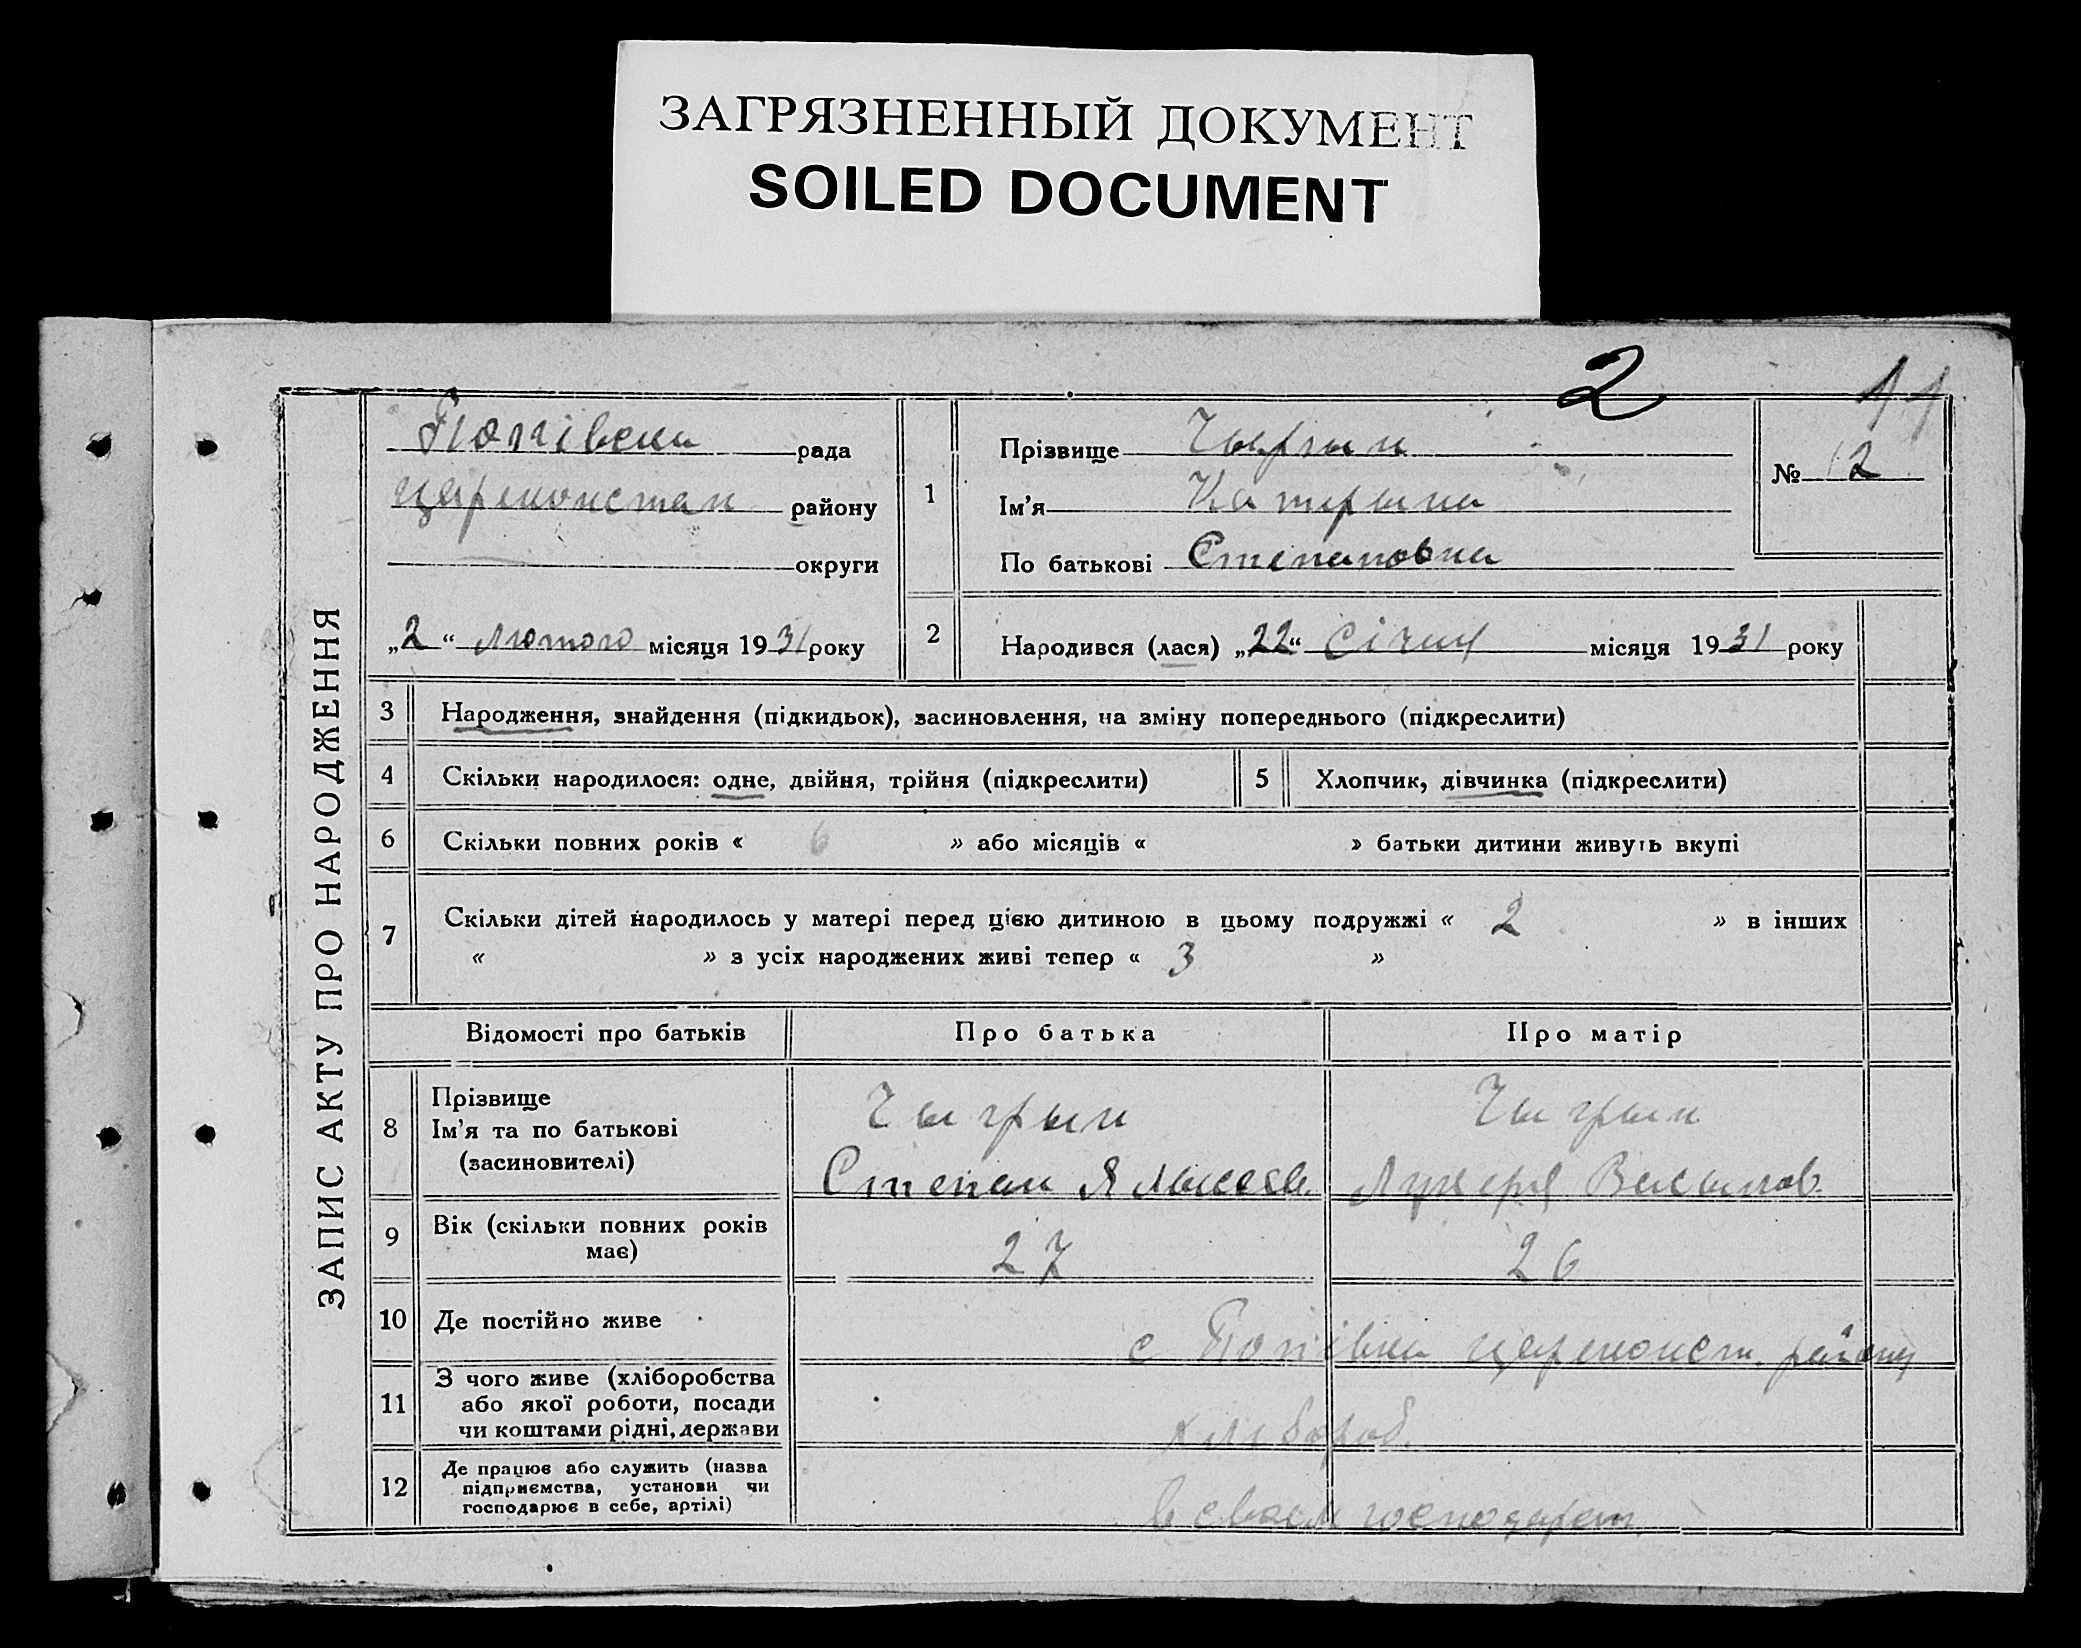 ЗАГРЯЗНЕННЫЙ ДОКУМЕНТ
SOILED DOCUMENT
2
11
ЗАПИС АКТУ ПРО НАРОДЖЕННЯ
Попівска рада
Цареконстан району
округи
„2“ Лютого місяця 1931 року
1
Прізвище Чыгрын
Ім'я Катерына
По батькові Степановна
№ 12
2
Народився (лася) „22“ Січня місяця 1931 року
3 Народження, знайдення (підкидьок), засиновлення, на зміну попереднього (підкреслити)
4 Скільки народилося: одне, двійня, трійня (підкреслити) 5 Хлопчик, дівчинка (підкреслити)
6 Скільки повних років « 6 » або місяців « » батьки дитини живуть вкупі
7 Скільки дітей народилось у матері перед цією дитиною в цьому подружжі « 2 » в інших
« » з усіх народжених живі тепер « 3 »
Відомості про батьків Про батька Про матір
8 Прізвище
Ім'я та по батькові
(засиновителі)
Чыгрын
Степан Алыксев.
Чыгрын
Лукеря Васылов.
9 Вік (скільки повних років
має)
27 26
10 Де постійно живе
с Попівка Цареконст. району
11 З чого живе (хліборобства
або якої роботи, посади
чи коштами рідні, держави
хлибороб.
12 Де працює або служить (назва
підприємства, установи чи
господарює в себе, артілі)
в своем господарст.